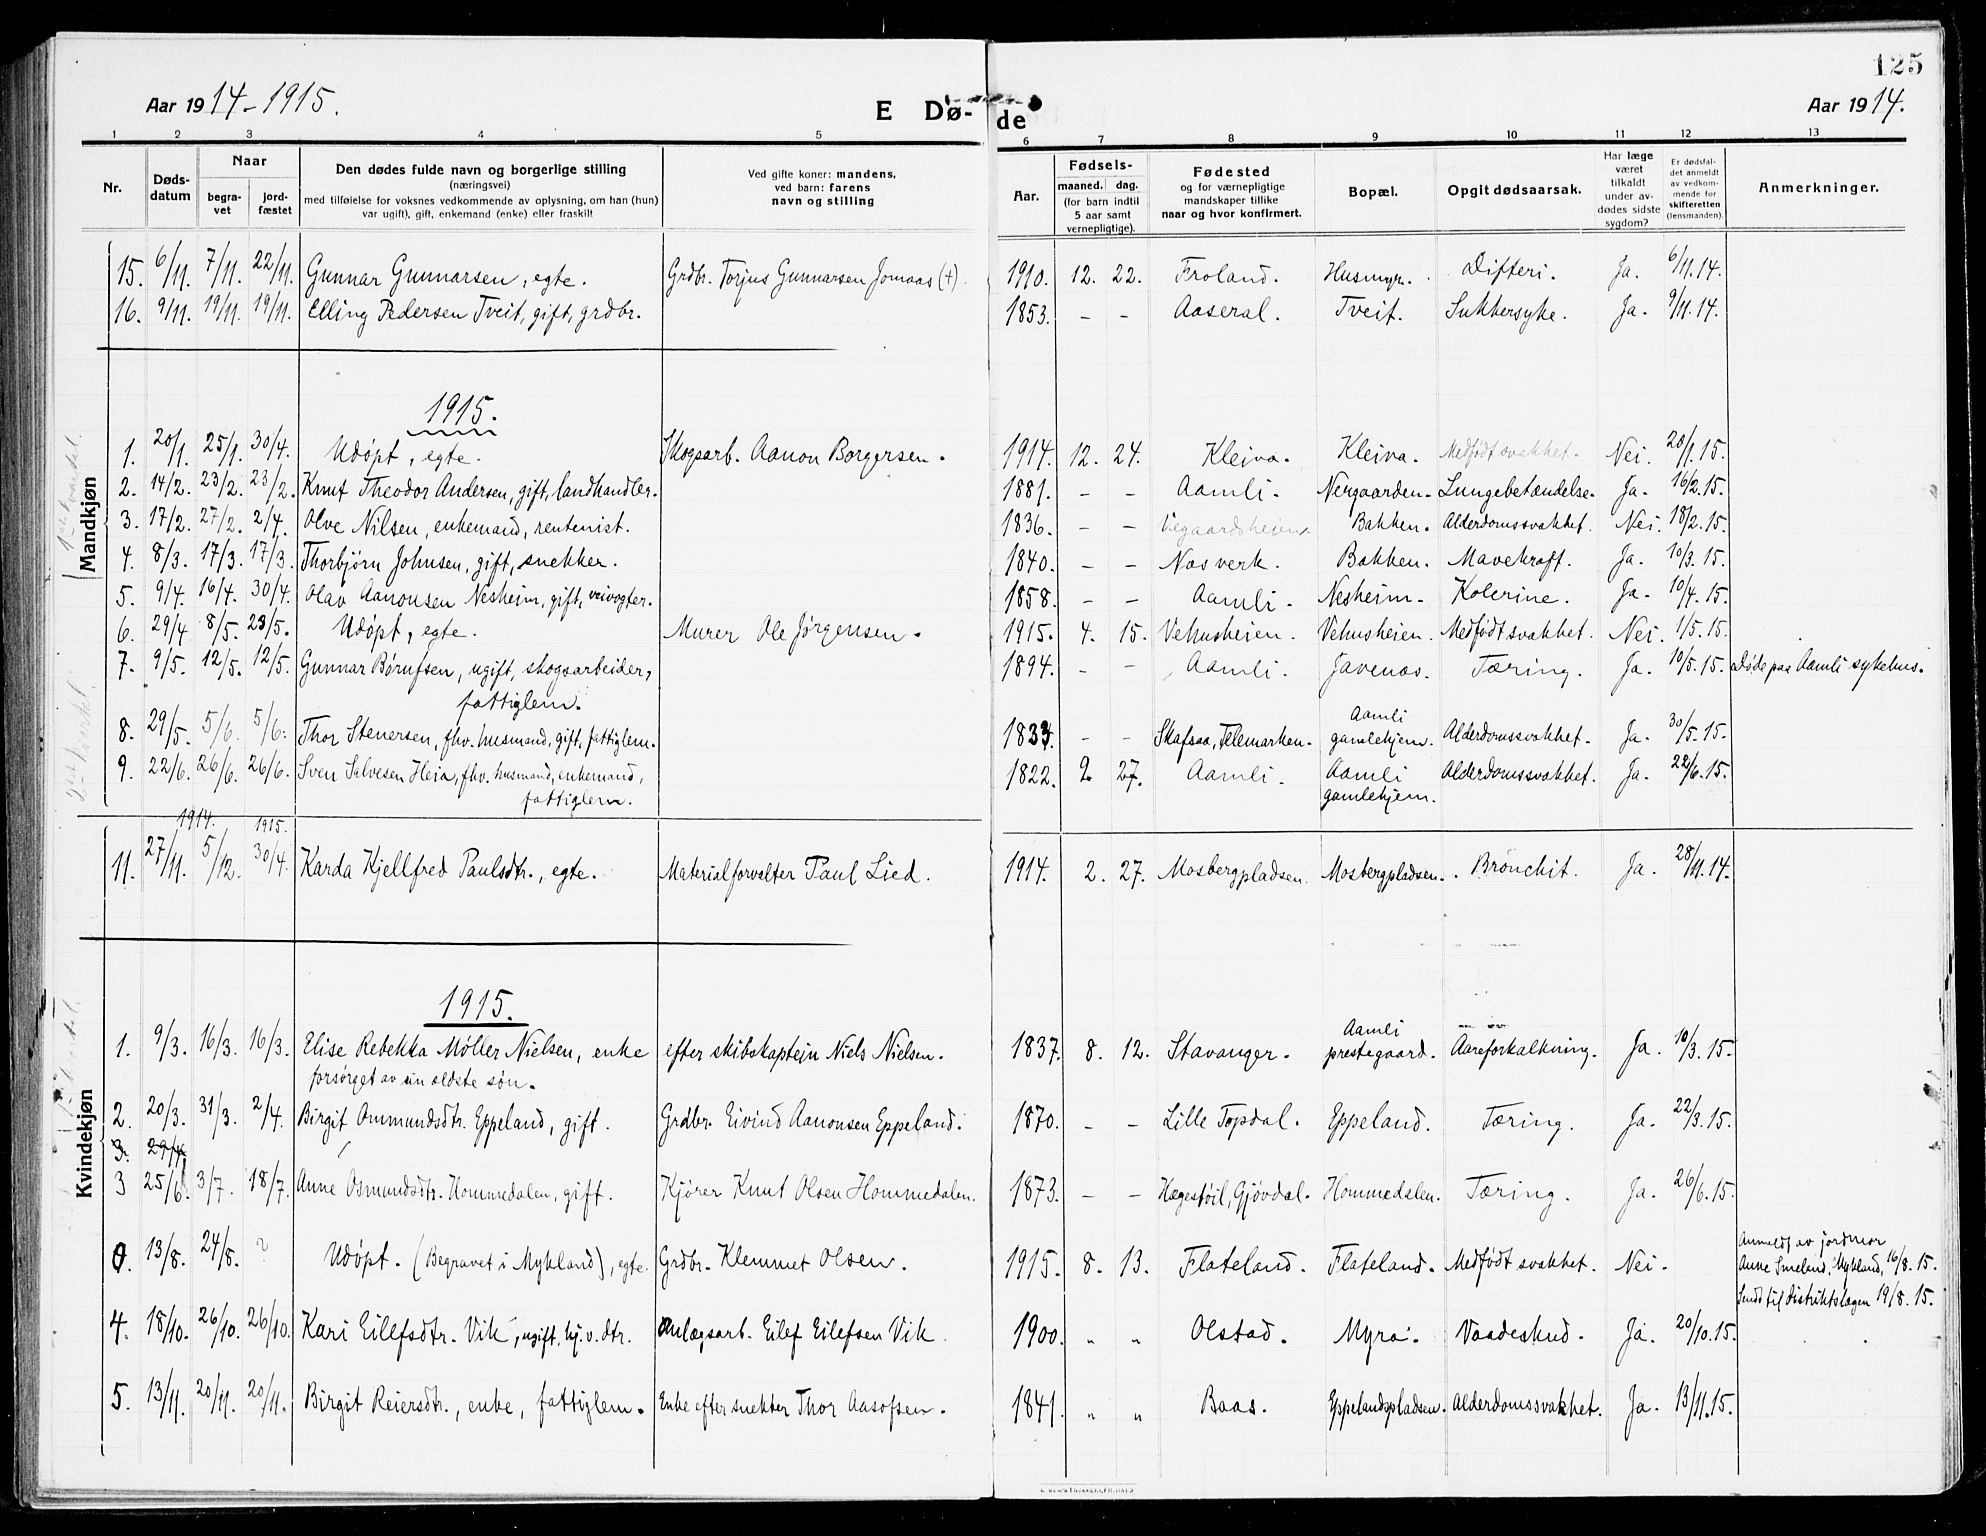 125
Aar 1914-1915.
E Dø-de
Aar 1914.
1 2 3 4 5 6 7 8 9 10 11 12 13
Nr.
Døds-
datum
Naar
begra-
vet
jord-
fæstet
Den dødes fulde navn og borgerlige stilling
(næringsvei)
med tilføielse for voksnes vedkommende av oplysning, om han (hun)
var ugift), gift, enkemand (enke) eller fraskilt
Ved gifte koner: mandens,
ved barn: farens
navn og stilling
Aar.
Fødsels-
maaned. dag.
(for barn indtil
5 aar samt
vernepligtige).
Fødested
og for værnepligtige
mandskaper tillike
naar og hvor konfirmert.
Bopæl.
Opgit dødsaarsak.
Har læge
været
tilkaldt
under av-
dødes sidste
sygdom?
Er dødsfal-
det anmeldt
av vedkom-
mende for
skifteretten
(lensmanden).
Anmerkninger.
Mandkjøn
15. 6/11. 7/11. 22/11. Gunnar Gunnarsen, egte. Grdbr. Torjus Gunnarsen Jomaas (+). 1910. 12. 22. Froland. Husmyr. Difteri. Ja. 6/11.14.
16. 9/11. 19/11. 19/11. Elling Pedersen Tveit, gift, grdbr. 1853. – – Aaseral. Tveit. Sukkersyke. Ja. 9/11.14.
1915.
1. 20/1. 25/1. 30/4. Udøpt, egte. Skogsarb. Aanon Borgersen. 1914. 12. 24. Kleiva. Kleiva. Medfødt svakhet. Nei. 20/1.15.
2. 14/2. 23/2. 23/2. Knut Theodor Andersen, gift, landhandler. 1881. – – Aamli. Nergaarden. Lungebetændelse. Ja. 16/2.15.
3. 17/2. 27/2. 2/4. Olve Nilsen, enkemand, rentenist. 1836. – – Vegaardsheien. Bakken. Alderdomssvakhet. Nei. 18/2.15.
4. 8/3. 17/3. 17/3. Thorbjørn Johnsen, gift, snekker. 1840. – – Nosverk. Bakken. Mavekræft. Ja. 10/3.15.
5. 9/4. 16/4. 30/4. Olav Aanonsen Nesheim, gift, veivogter. 1858. – – Aamli. Nesheim. Kolerine. Ja. 10/4.15.
6. 29/4 8/5. 23/5. Udøpt, egte. Murer Ole Jørgensen. 1915. 4. 15. Vehusheien. Vehusheien. Medfødt svakhet. Nei. 1/5.15.
7. 9/5. 12/5. 12/5. Gunnar Børufsen, ugift, skogsarbeider, 1894. – – Aamli. Javenæs. Tæring. Ja. 10/5.15. Døde paa Aamli sykehus.
fattiglem.
8. 29/5. 5/6. 5/6. Thor Stenersen, fhv. husmand, gift, fattiglem. 1834. – – Skafsaa, Telemarken. Aamli gamlehjem. Alderdomssvakhet. Ja. 30/5.15.
9. 22/6. 26/6. 26/6. Sven Salvesen Heia, fhv. husmand, enkemand, 1822. 2 27. Aamli. Aamli gamlehjem. Alderdomssvakhet. Ja. 22/6.15.
fattiglem.
Kvindekjøn
1914. 1915.
11. 27/11. 5/12. 30/4. Karda Kjellfred Paulsdtr., egte. Materialforvalter Paul Lied. 1914. 2. 27. Mosbergpladsen. Mosbergpladsen. Bronchit. Ja. 28/11.14.
1915.
1. 9/3. 16/3. 16/3. Elise Rebekka Møller Nielsen, enke efter skibskaptein Niels Nielsen. 1837. 8. 12. Stavanger. Aamli prestegaard. Aareforkalkning. Ja. 10/3.15.
forsørget av sin ældste søn.
2. 20/3. 31/3. 2/4. Birgit Ommundsdtr. Eppeland, gift. Grdbr. Eivind Aanonsen Eppeland. 1870. – – Lille Topdal. Eppeland. Tæring. Ja. 22/3.15.
3. 29/4
3 25/6 3/7. 18/7. Anne Osmundsdtr. Hommedalen, gift. Kjører Knut Olsen Hommedalen. 1873. – – Hægestøil, Gjøvdal. Hommedalen. Tæring. Ja. 26/6.15.
0. 13/8. 24/8. ? Udøpt. (Begravet i Mykland), egte. Grdbr. Klemmet Olsen. 1915. 8. 13. Flateland. Flateland. Medfødt svakhet. Nei. Anmeldt av jordmor
Anne Smeland, Mykland, 16/8.15.
Sendt til distriktslægen 19/8.15.
4. 18/10. 26/10. 26/10. Kari Eilefsdtr. Vik, ugift, hj.v.dtr. Anlægsarb. Eilef Eilefsen Vik. 1900. " " Olstad. Myra. Vaadeskud. Ja. 20/10.15.
5. 13/11. 20/11. 20/11. Birgit Reiersdtr., enke, fattiglem. Enke efter snekker Thor Aasofsen. 1841. " " Baas. Eppelandspladsen. Alderdomssvakhet. Ja. 13/11.15.